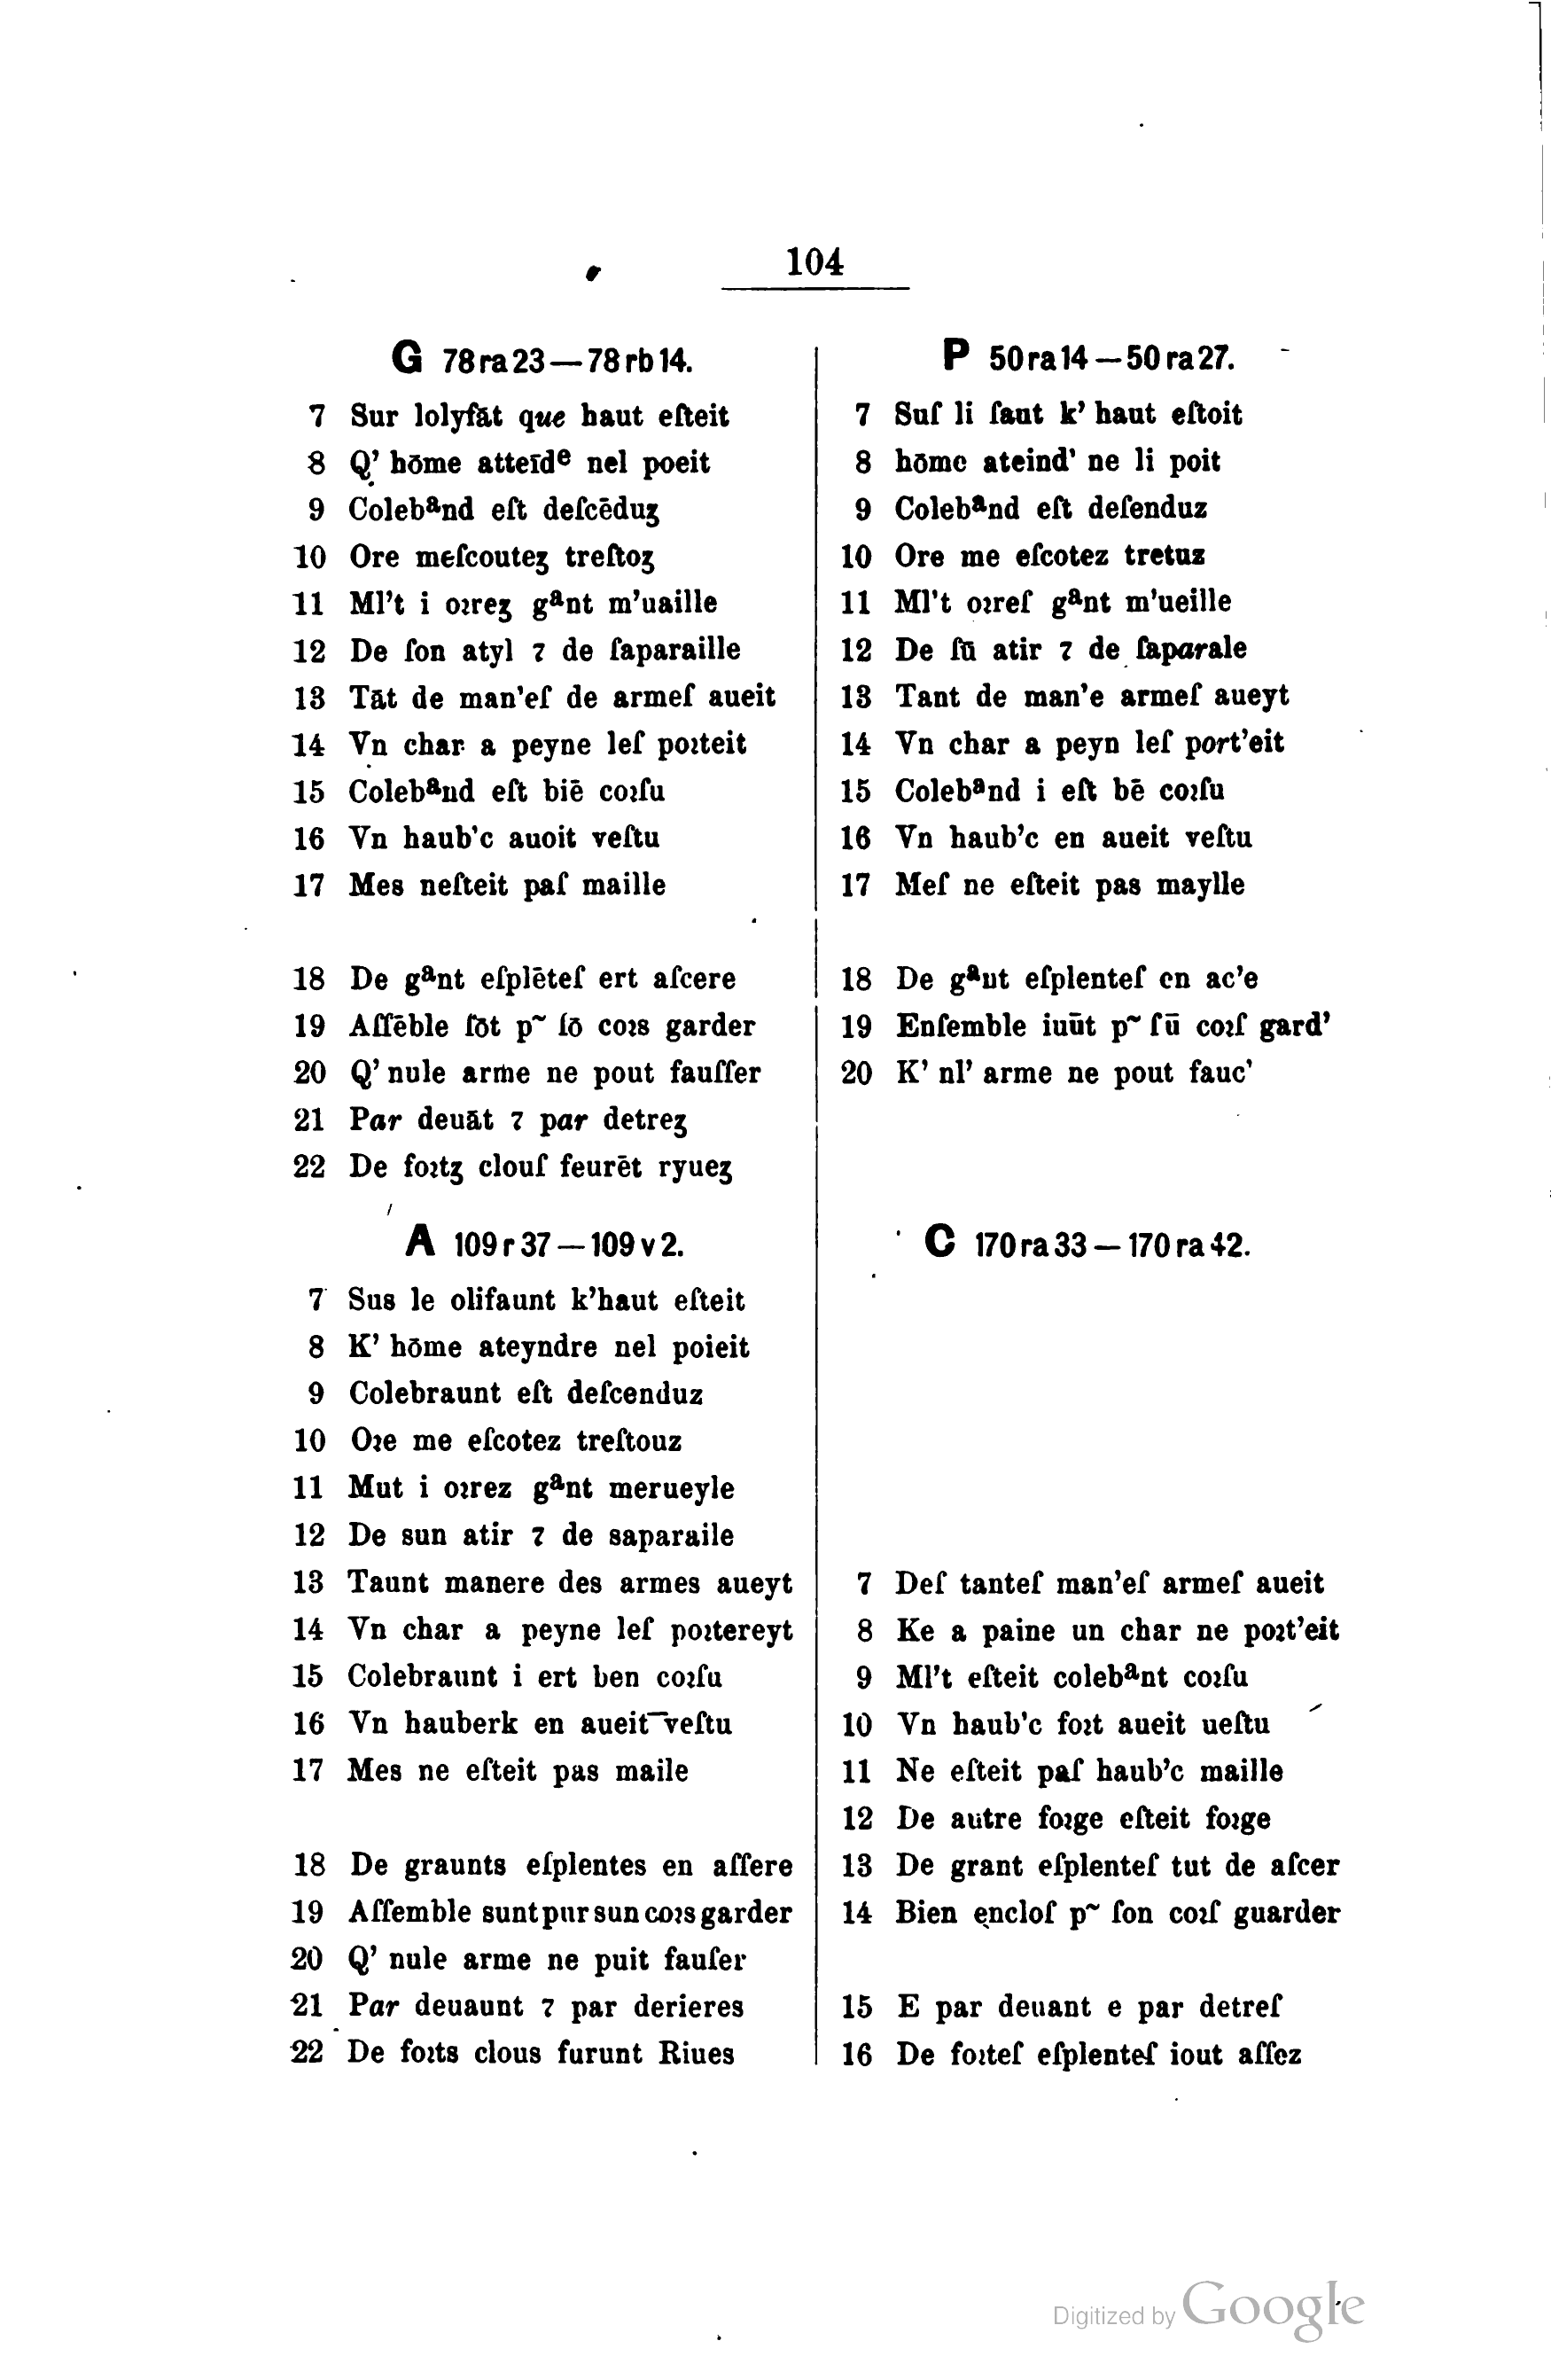 104
G 78ra23—78rb14.
7 Sur lolyfāt que haut eſteit
8 Q’ hōme atteīdᵉ nel poeit
9 Colebᵃnd eſt deſcēduʒ
10 Ore meſcouteʒ treſtoʒ
11 Ml’t i oꝛreʒ gᵃnt m’uaille
12 De ſon atyl ⁊ de ſaparaille
13 Tāt de man’eſ de armeſ aueit
14 Vn char a peyne leſ poꝛteit
15 Colebᵃnd eſt biē coꝛſu
16 Vn haub’c auoit veſtu
17 Mes neſteit paſ maille
18 De gᵃnt eſplēteſ ert aſcere
19 Aſſēble ſōt p~ ſō coꝛs garder
20 Q’ nule arme ne pout fauſſer
21 Par deuāt ⁊ par detreʒ
22 De foꝛtʒ clouſ feurēt ryueʒ
P 50ra14—50ra27.
7 Suſ li ſant k’ haut eſtoit
8 hōme ateind’ ne li poit
9 Colebᵃnd eſt deſenduz
10 Ore me eſcotez tretuz
11 Ml’t oꝛreſ gᵃnt m’ueille
12 De ſū atir ⁊ de ſaparale
13 Tant de man’e armeſ aueyt
14 Vn char a peyn leſ port’eit
15 Colebᵃnd i eſt bē coꝛſu
16 Vn haub’c en aueit veſtu
17 Meſ ne eſteit pas maylle
18 De gᵃut eſplenteſ en ac’e
19 Enſemble iuūt p~ ſū coꝛſ gard’
20 K’ nl’ arme ne pout fauc’
A 109r37—109v2.
7 Sus le olifaunt k’haut eſteit
8 K’ hōme ateyndre nel poieit
9 Colebraunt eſt deſcenduz
10 Oꝛe me eſcotez treſtouz
11 Mut i oꝛrez gᵃnt merueyle
12 De sun atir ⁊ de saparaile
13 Taunt manere des armes aueyt
14 Vn char a peyne leſ poꝛtereyt
15 Colebraunt i ert ben coꝛſu
16 Vn hauberk en aueit veſtu
17 Mes ne eſteit pas maile
18 De graunts eſplentes en aſſere
19 Aſſemble sunt pur sun coꝛs garder
20 Q’ nule arme ne puit fauſer
21 Par deuaunt ⁊ par derieres
22 De foꝛts clous furunt Riues
C 170ra33—170ra42.
7 Deſ tanteſ man’eſ armeſ aueit
8 Ke a paine un char ne poꝛt’eit
9 Ml’t eſteit colebᵃnt coꝛſu
10 Vn haub’c foꝛt aueit ueſtu
11 Ne eſteit paſ haub’c maille
12 De autre foꝛge eſteit foꝛge
13 De grant eſplenteſ tut de aſcer
14 Bien encloſ p~ ſon coꝛſ guarder
15 E par deuant e par detreſ
16 De foꝛteſ eſplenteſ iout aſſez
Digitized by Google